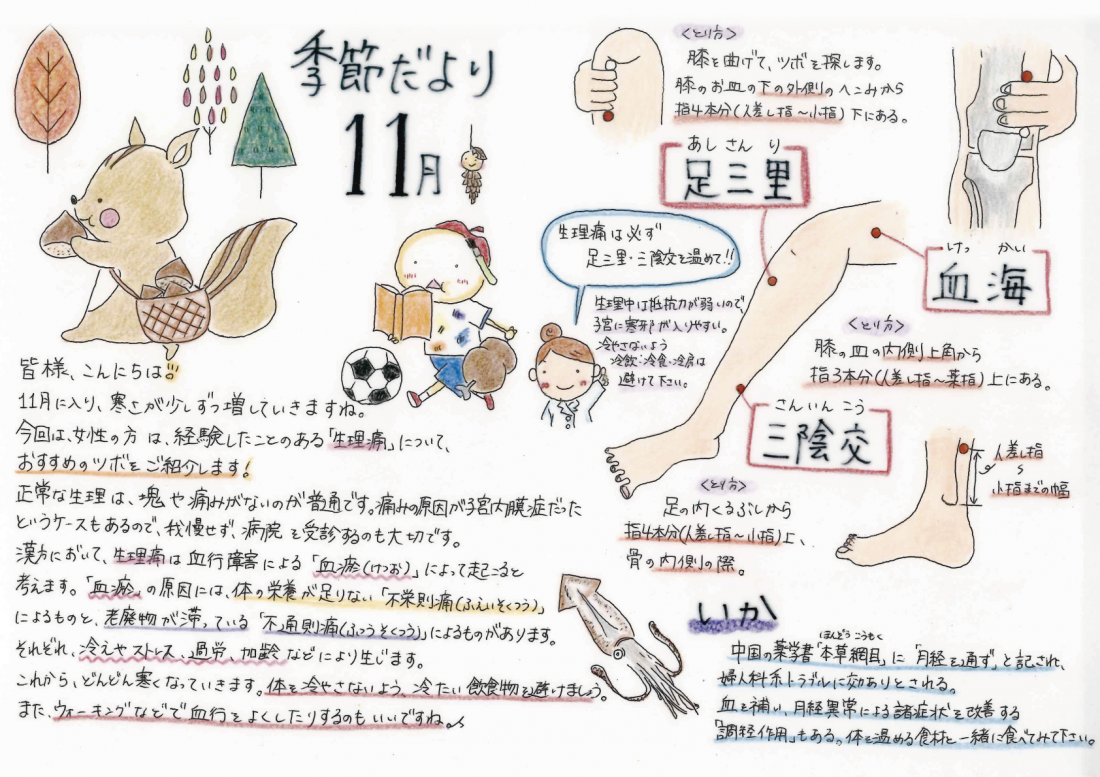 季節だより
11月
皆様、こんにちは!!
11月に入り、寒さが少しずつ増していきますね。
今回は、女性の方は、経験したことのある「生理痛」について、
おすすめのツボをご紹介します!
正常な生理は、塊や痛みがないのが普通です。痛みの原因が子宮内膜症だった
というケースもあるので、我慢せず、病院を受診するのも大切です。
漢方において、生理痛は血行障害による「血瘀(けつお)」によって起こると
考えます。「血瘀」の原因には、体の栄養が足りない「不栄則痛(ふえいそくつう)」
によるものと、老廃物が滞っている「不通則痛(ふつうそくつう)」によるものがあります。
それぞれ、冷えやストレス、過労、加齢などにより生じます。
これから、どんどん寒くなっていきます。体を冷やさないよう、冷たい飲食物を避けましょう。
また、ウォーキングなどで血行をよくしたりするのもいいですね。
<とり方>
膝を曲げて、ツボを探します。
膝のお皿の下の外側のへこみから
指4本分(人差し指~小指)下にある。
あしさんり
足三里
生理痛は必ず
足三里・三陰交を温めて!!
生理中は抵抗力が弱いので、
子宮に寒邪が入りやすい。
冷やさないよう
冷飲・冷食・冷房は
避けて下さい。
けっかい
血海
<とり方>
膝の皿の内側上角から
指3本分(人差し指~薬指)上にある。
さんいんこう
三陰交
<とり方>
足の内くるぶしから
指4本分(人差し指~小指)上、
骨の内側の際。
人差し指
~
小指までの幅
いか
ほんぞうこうもく
中国の薬学書「本草綱目」に「月経を通ず」と記され、
婦人科系トラブルに効ありとされる。
血を補い、月経異常による諸症状を改善する
「調経作用」もある。体を温める食材と一緒に食べてみて下さい。